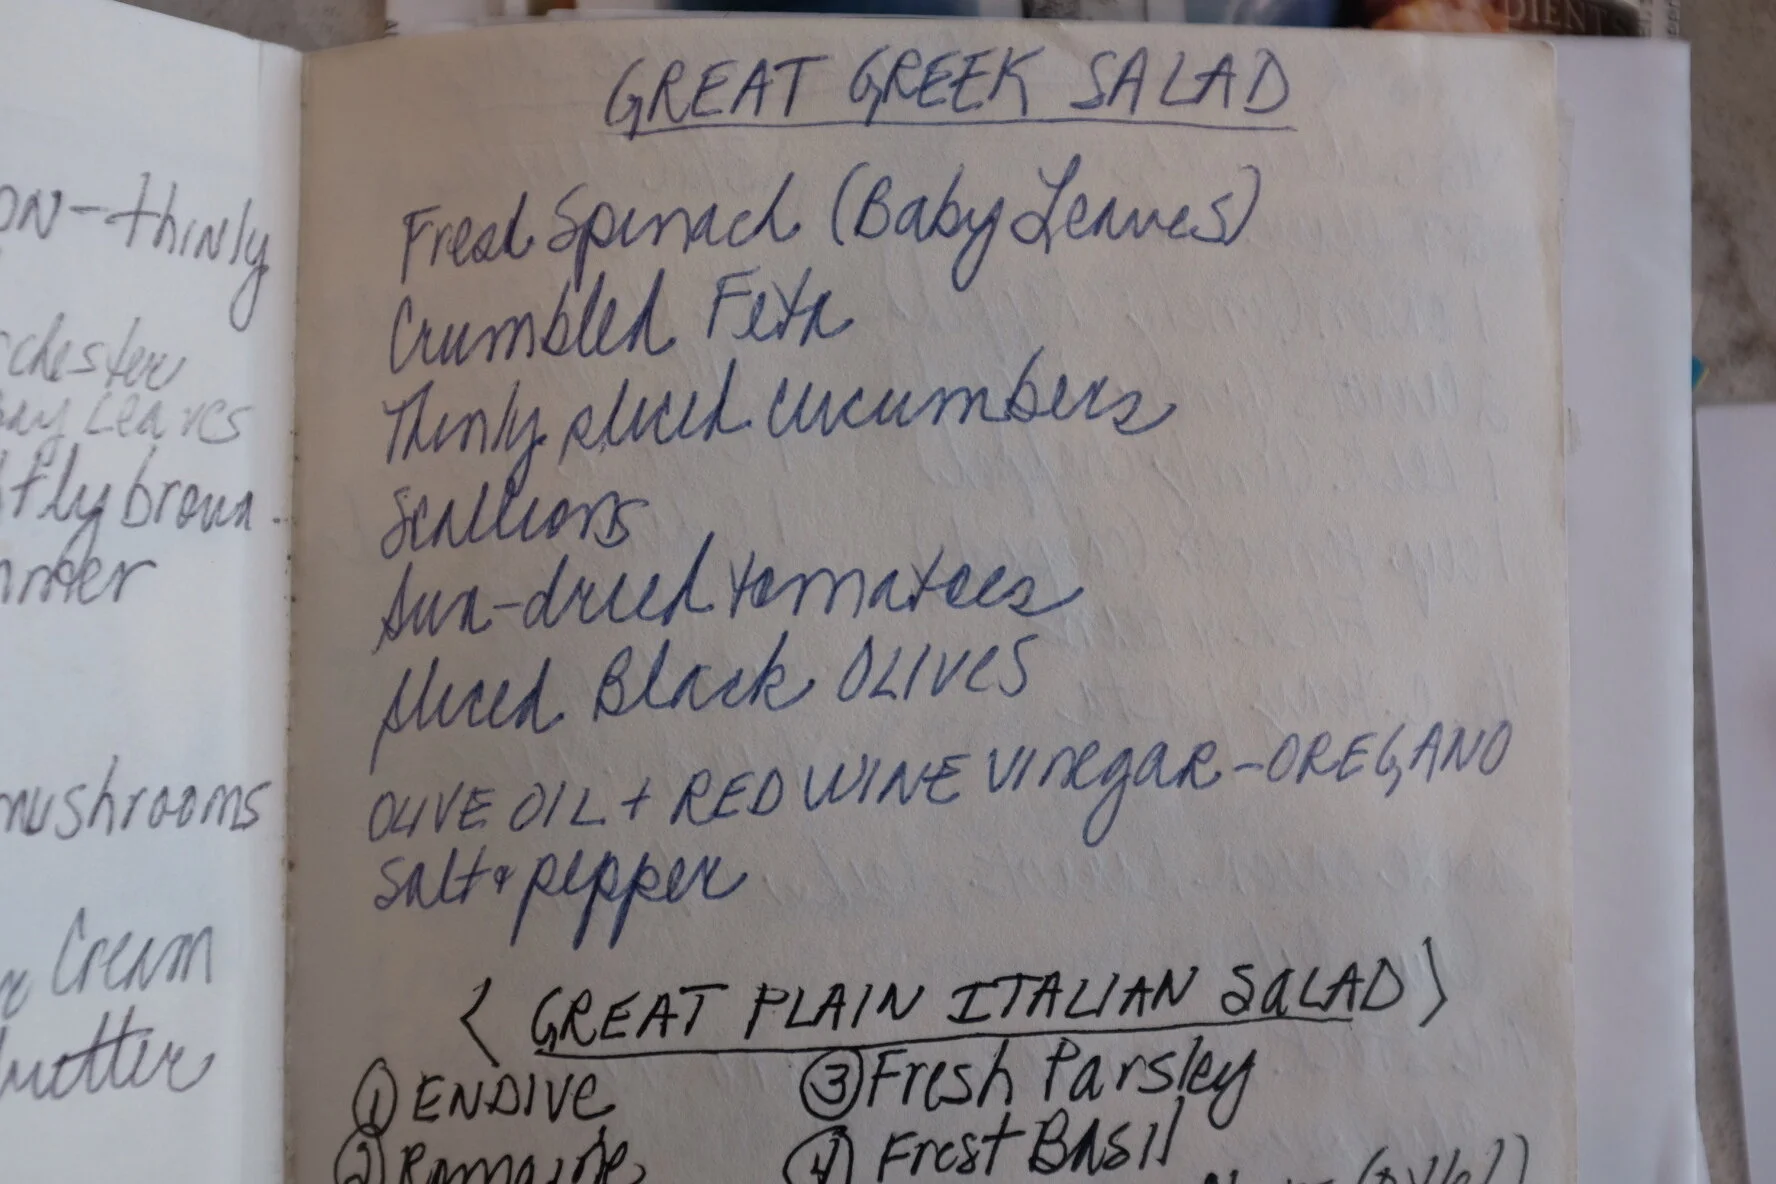 DIENTS
ON-thinly
chester
Bay Leaves
tly brown
mushrooms
Cream
butter
GREAT GREEK SALAD
Fresh Spinach (Baby Leaves)
Crumbled Feta
Thinly sliced cucumbers
Scallions
Sun-dried tomatoes
Sliced Black OLIVES
OLIVE OIL + RED WINE Vinegar - OREGANO
Salt & pepper
< GREAT PLAIN ITALIAN SALAD >
① ENDIVE ③ Fresh Parsley
② Romaine ④ Fresh Basil